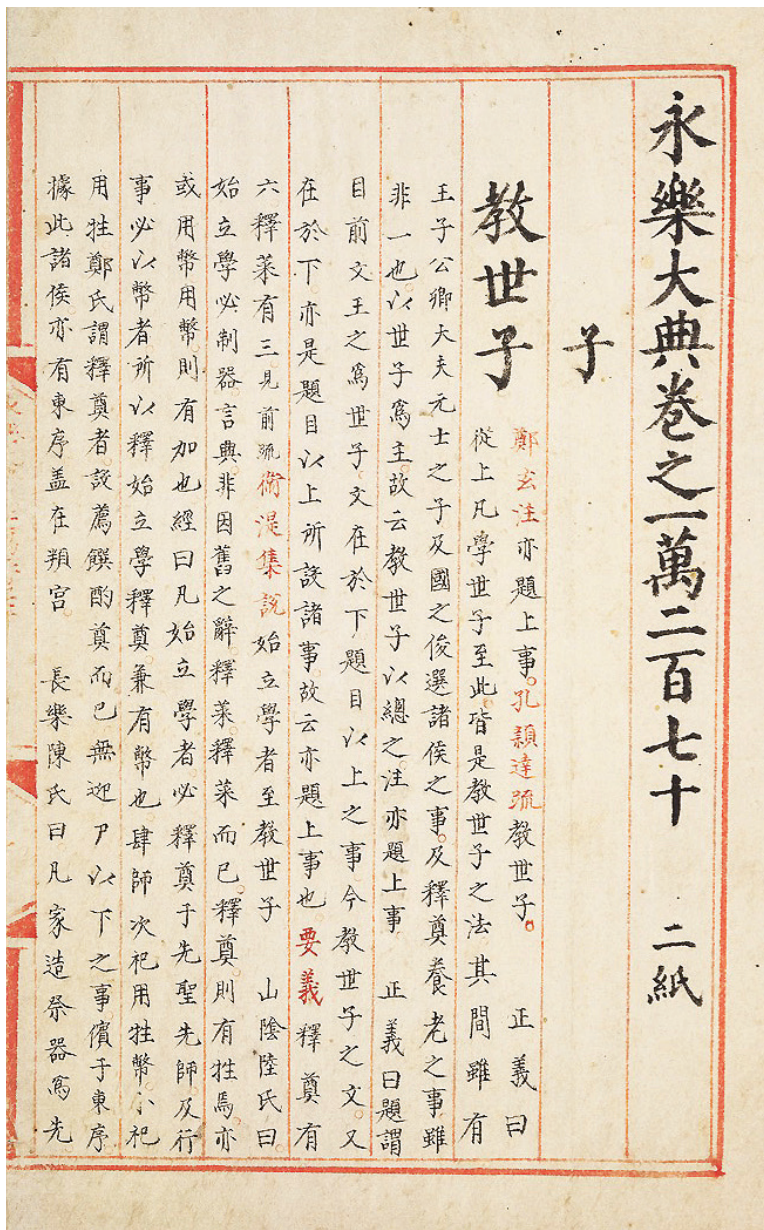 永樂大典卷之一萬二百七十 二紙
子
教世子
鄭玄注亦題上事。孔穎達疏教世子。 正義曰
從上凡學世子至此。皆是教世子之法。其間雖有
王子公卿大夫元士之子及國之俊選諸侯之事。及釋奠養老之事。雖
非一也。以世子爲主。故云教世子以總之。注亦題上事 正義曰題謂
目前文王之爲世子。文在於下題目以上之事今教世子之文。又
在於下亦是題目以上所說諸事。故云亦題上事也。要義釋奠有
六釋菜有三。見前疏衞湜集說始立學者至教世子 山陰陸氏曰。
始立學必制器。言興。非因舊之辭釋菜。釋菜而已。釋奠。則有牲焉。亦
或用幣。用幣。則有加也經曰凡始立學者必釋奠于先聖先師及行
事必以幣者所以釋始立學釋奠兼有幣也。肆師次祀用牲幣。小祀
用牲。鄭氏謂釋奠者設薦饌酌奠而已無迎尸以下之事。儐于東序
據此諸侯亦有東序。蓋在頖宮。 長樂陳氏曰凡家造祭器爲先